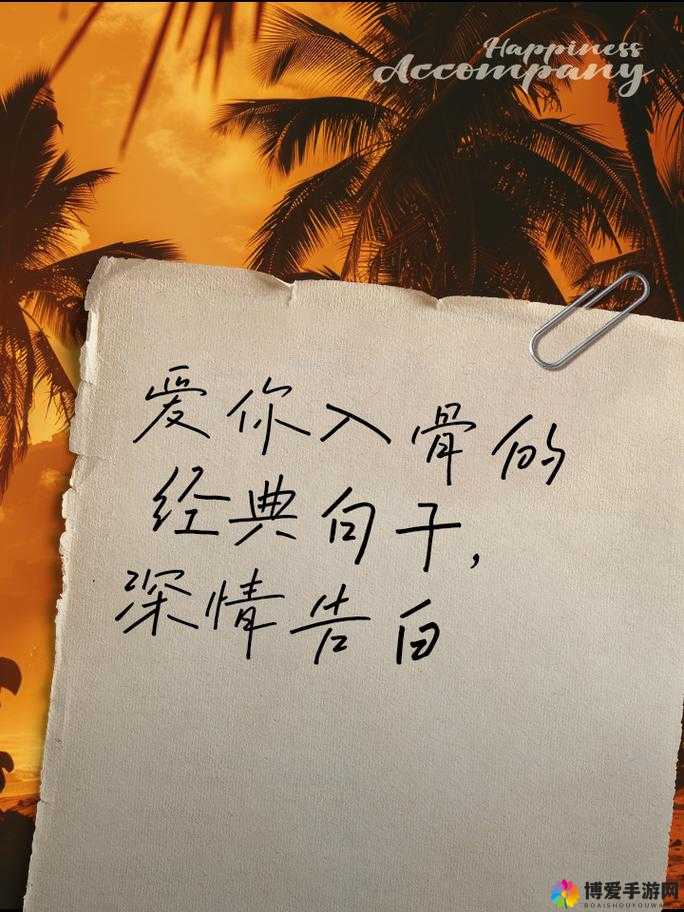 Happiness
Accompany
爱你入骨的
经典句子,
深情告白
博爱手游网
BOAISHOUYOUWANG